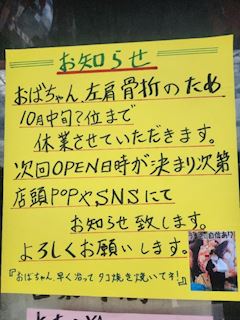 お知らせ
おばちゃん左肩骨折のため
10月中旬?位まで
休業させていただきます。
次回OPEN日時が決まり次第
店頭POPや、SNSにて
お知らせ致します。
よろしくお願いします。
『おばちゃん、早く治って タコ焼き焼いてネ!』